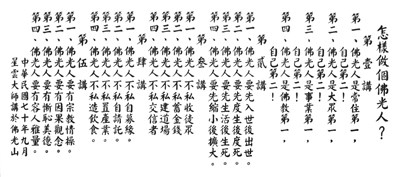 怎樣做個佛光人？
第壹講
第一、佛光人是常住第一，
自己第二！
第二、佛光人是大眾第一，
自己第二！
第三、佛光人是事業第一，
自己第二！
第四、佛光人是佛教第一，
自己第二！
第貳講
第一、佛光人要先入世後出世。
第二、佛光人要先度生後度死。
第三、佛光人要先生活後生死。
第四、佛光人要先縮小後擴大。
第參講
第一、佛光人不私收徒眾
第二、佛光人不私蓄金錢
第三、佛光人不私建道場
第四、佛光人不私交信者
第肆講
第一、佛光人不私自募緣。
第二、佛光人不私自請託。
第三、佛光人不私置產業。
第四、佛光人不私造飲食。
第伍講
第一、佛光人要有宗教情操。
第二、佛光人要有因果觀念。
第三、佛光人要有慚恥美德。
第四、佛光人要有容人雅量。
中華民國七十年九月
星雲大師講於佛光山